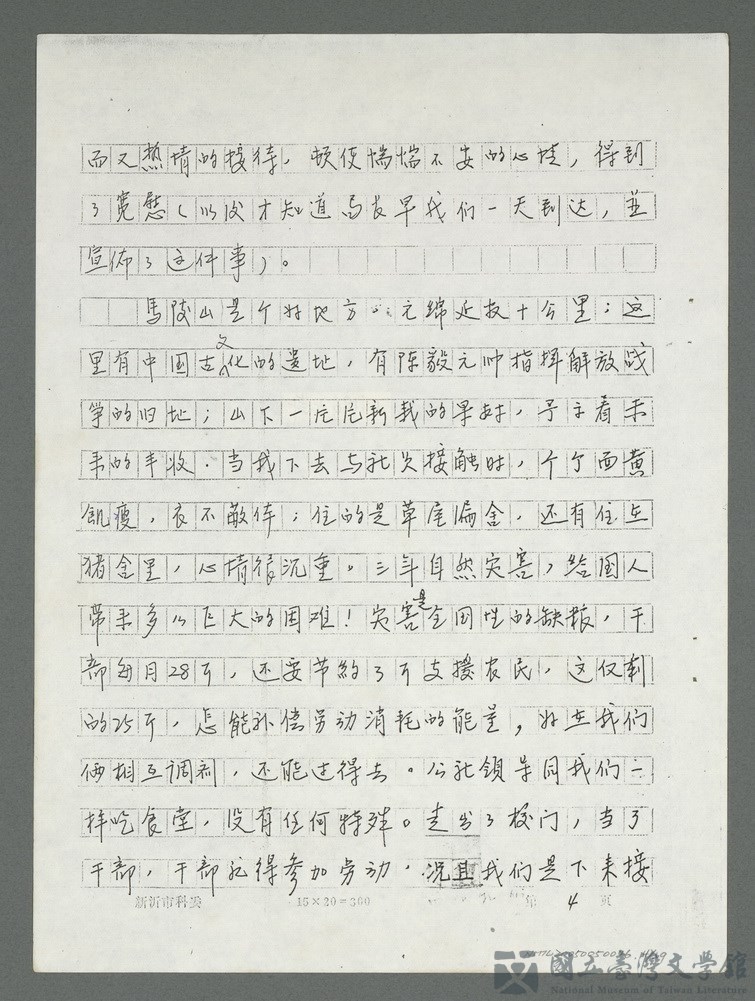 而又熱情的接待，頓使惴惴不安的心境，得到
了寬慰（以後才知道馬友早我们一天到达，並
宣佈了这件事）。
馬陵山是个好地方。元綿延數十公里；这
里有中国古文化的遗址，有陈毅元帅指揮解放战
争的旧址；山下一片片新栽的果树，予示着未
来的丰收．当我下去与社员接触时，个个面黄
飢瘦，衣不敝体；住的是草屋偏舍，还有住在
猪舍里，心情很沉重。三年自然灾害，给国人
带来多么巨大的困难！灾害是全国性的缺粮，干
部每月28斤，还要节約3斤支援农民，这仅剩
的25斤，怎能补偿劳动消耗的能量，好在我们
俩相互调剂，还能过得去。公社領导同我们一
样吃食堂，没有任何特殊。走出了校门，当了
干部，干部就得参加劳动，况且我们是下来接
新沂市科委
15×20=300
第 4 页
國立臺灣文學館
National Museum of Taiwan Literature